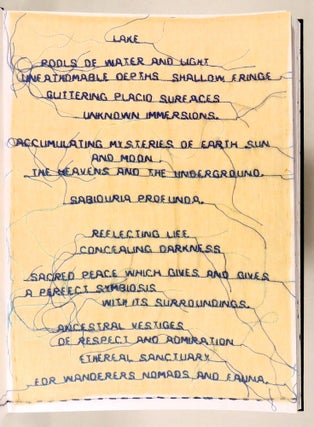 LAKE
POOLS OF WATER AND LIGHT
UNFATHOMABLE DEPTHS SHALLOW FRINGE
GLITTERING PLACID SURFACES
UNKNOWN IMMERSIONS.
ACCUMULATING MYSTERIES OF EARTH SUN
AND MOON.
THE HEAVENS AND THE UNDERGROUND.
SABIDURIA PROFUNDA.
REFLECTING LIFE
CONCEALING DARKNESS
SACRED PEACE WHICH GIVES AND GIVES
A PERFECT SYMBIOSIS
WITH ITS SURROUNDINGS.
ANCESTRAL VESTIGES
OF RESPECT AND ADMIRATION
ETHEREAL SANCTUARY
FOR WANDERERS NOMADS AND FAUNA.